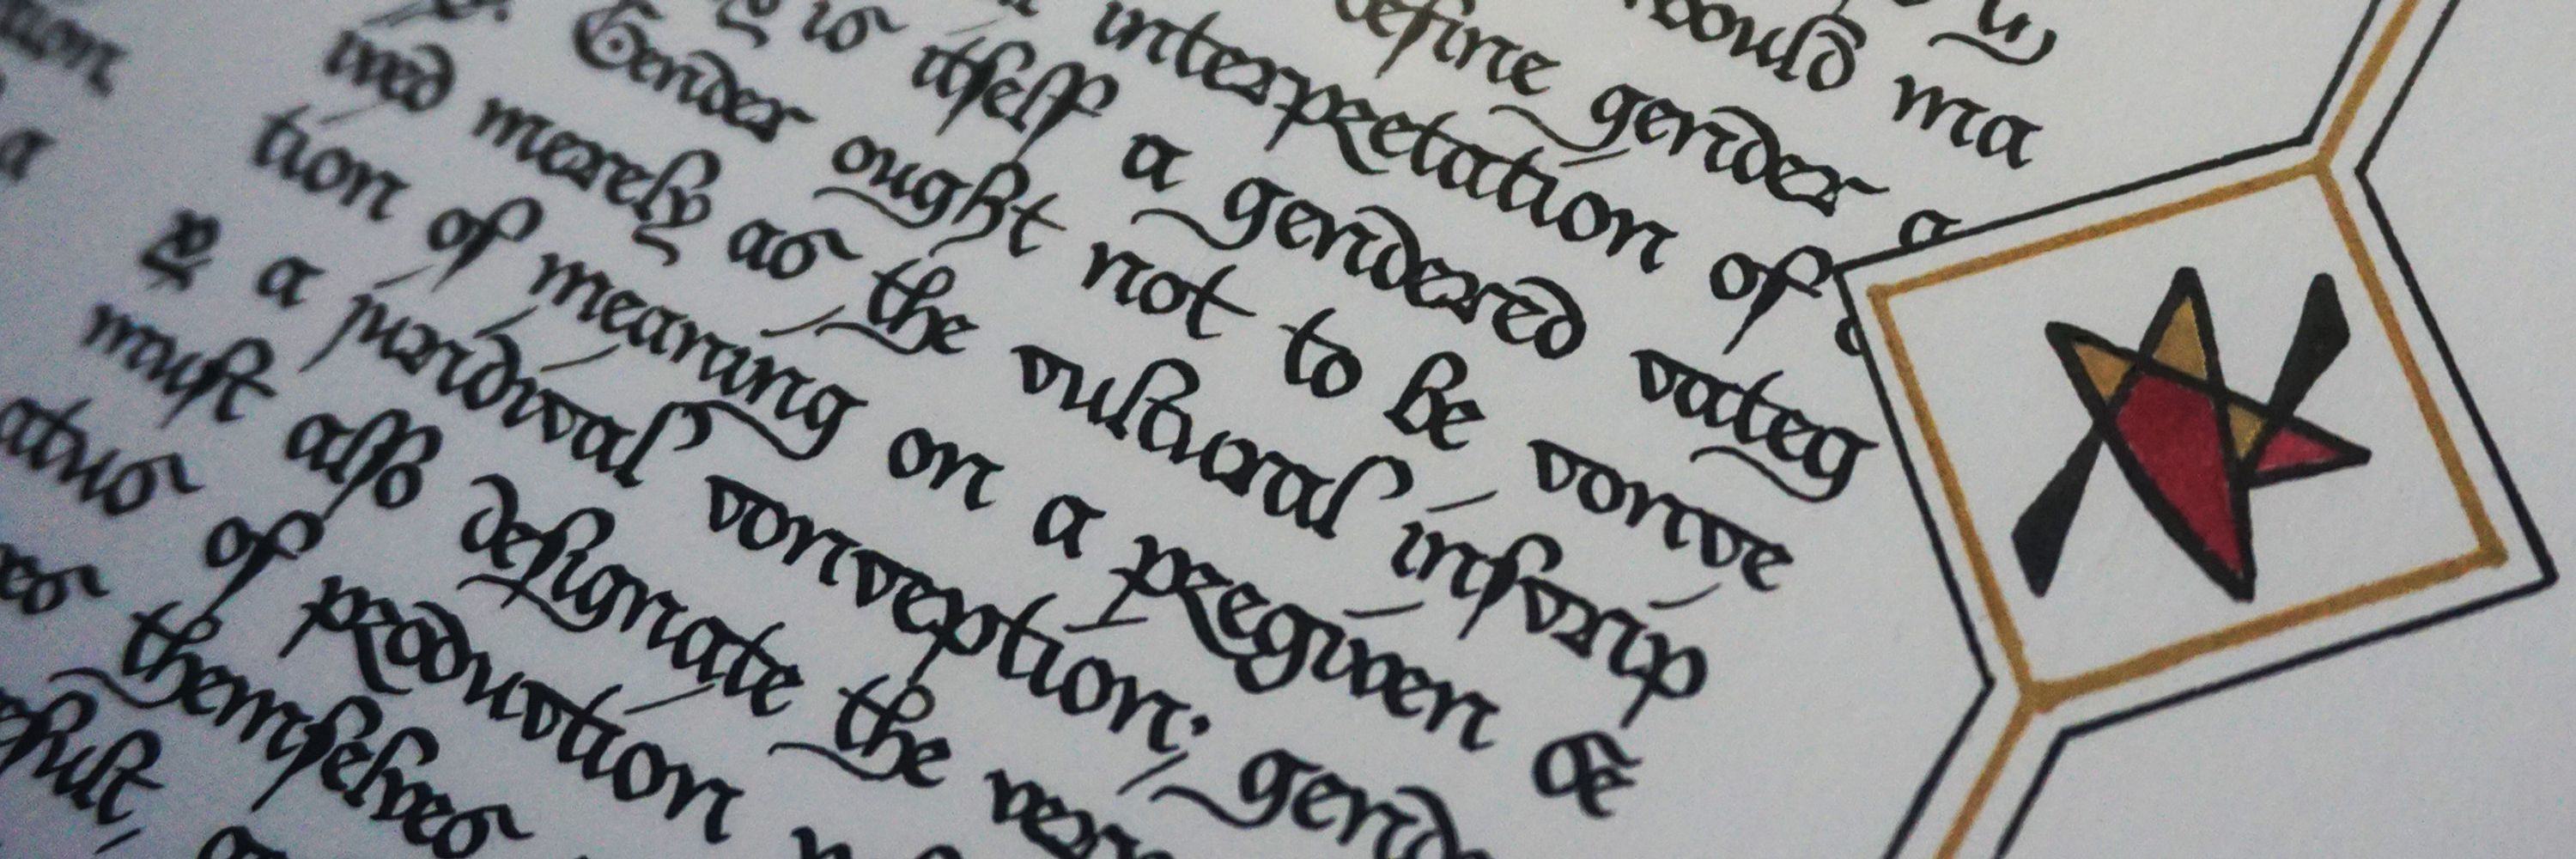 would ma
define gender a
interpretation of
is itself a gendered categ
Gender ought not to be conce
ived merely as the cultural inscrip
tion of meaning on a pregiven se
x a juridical conception; gend
must also designate the ver
atus of production
es themselves
esult,